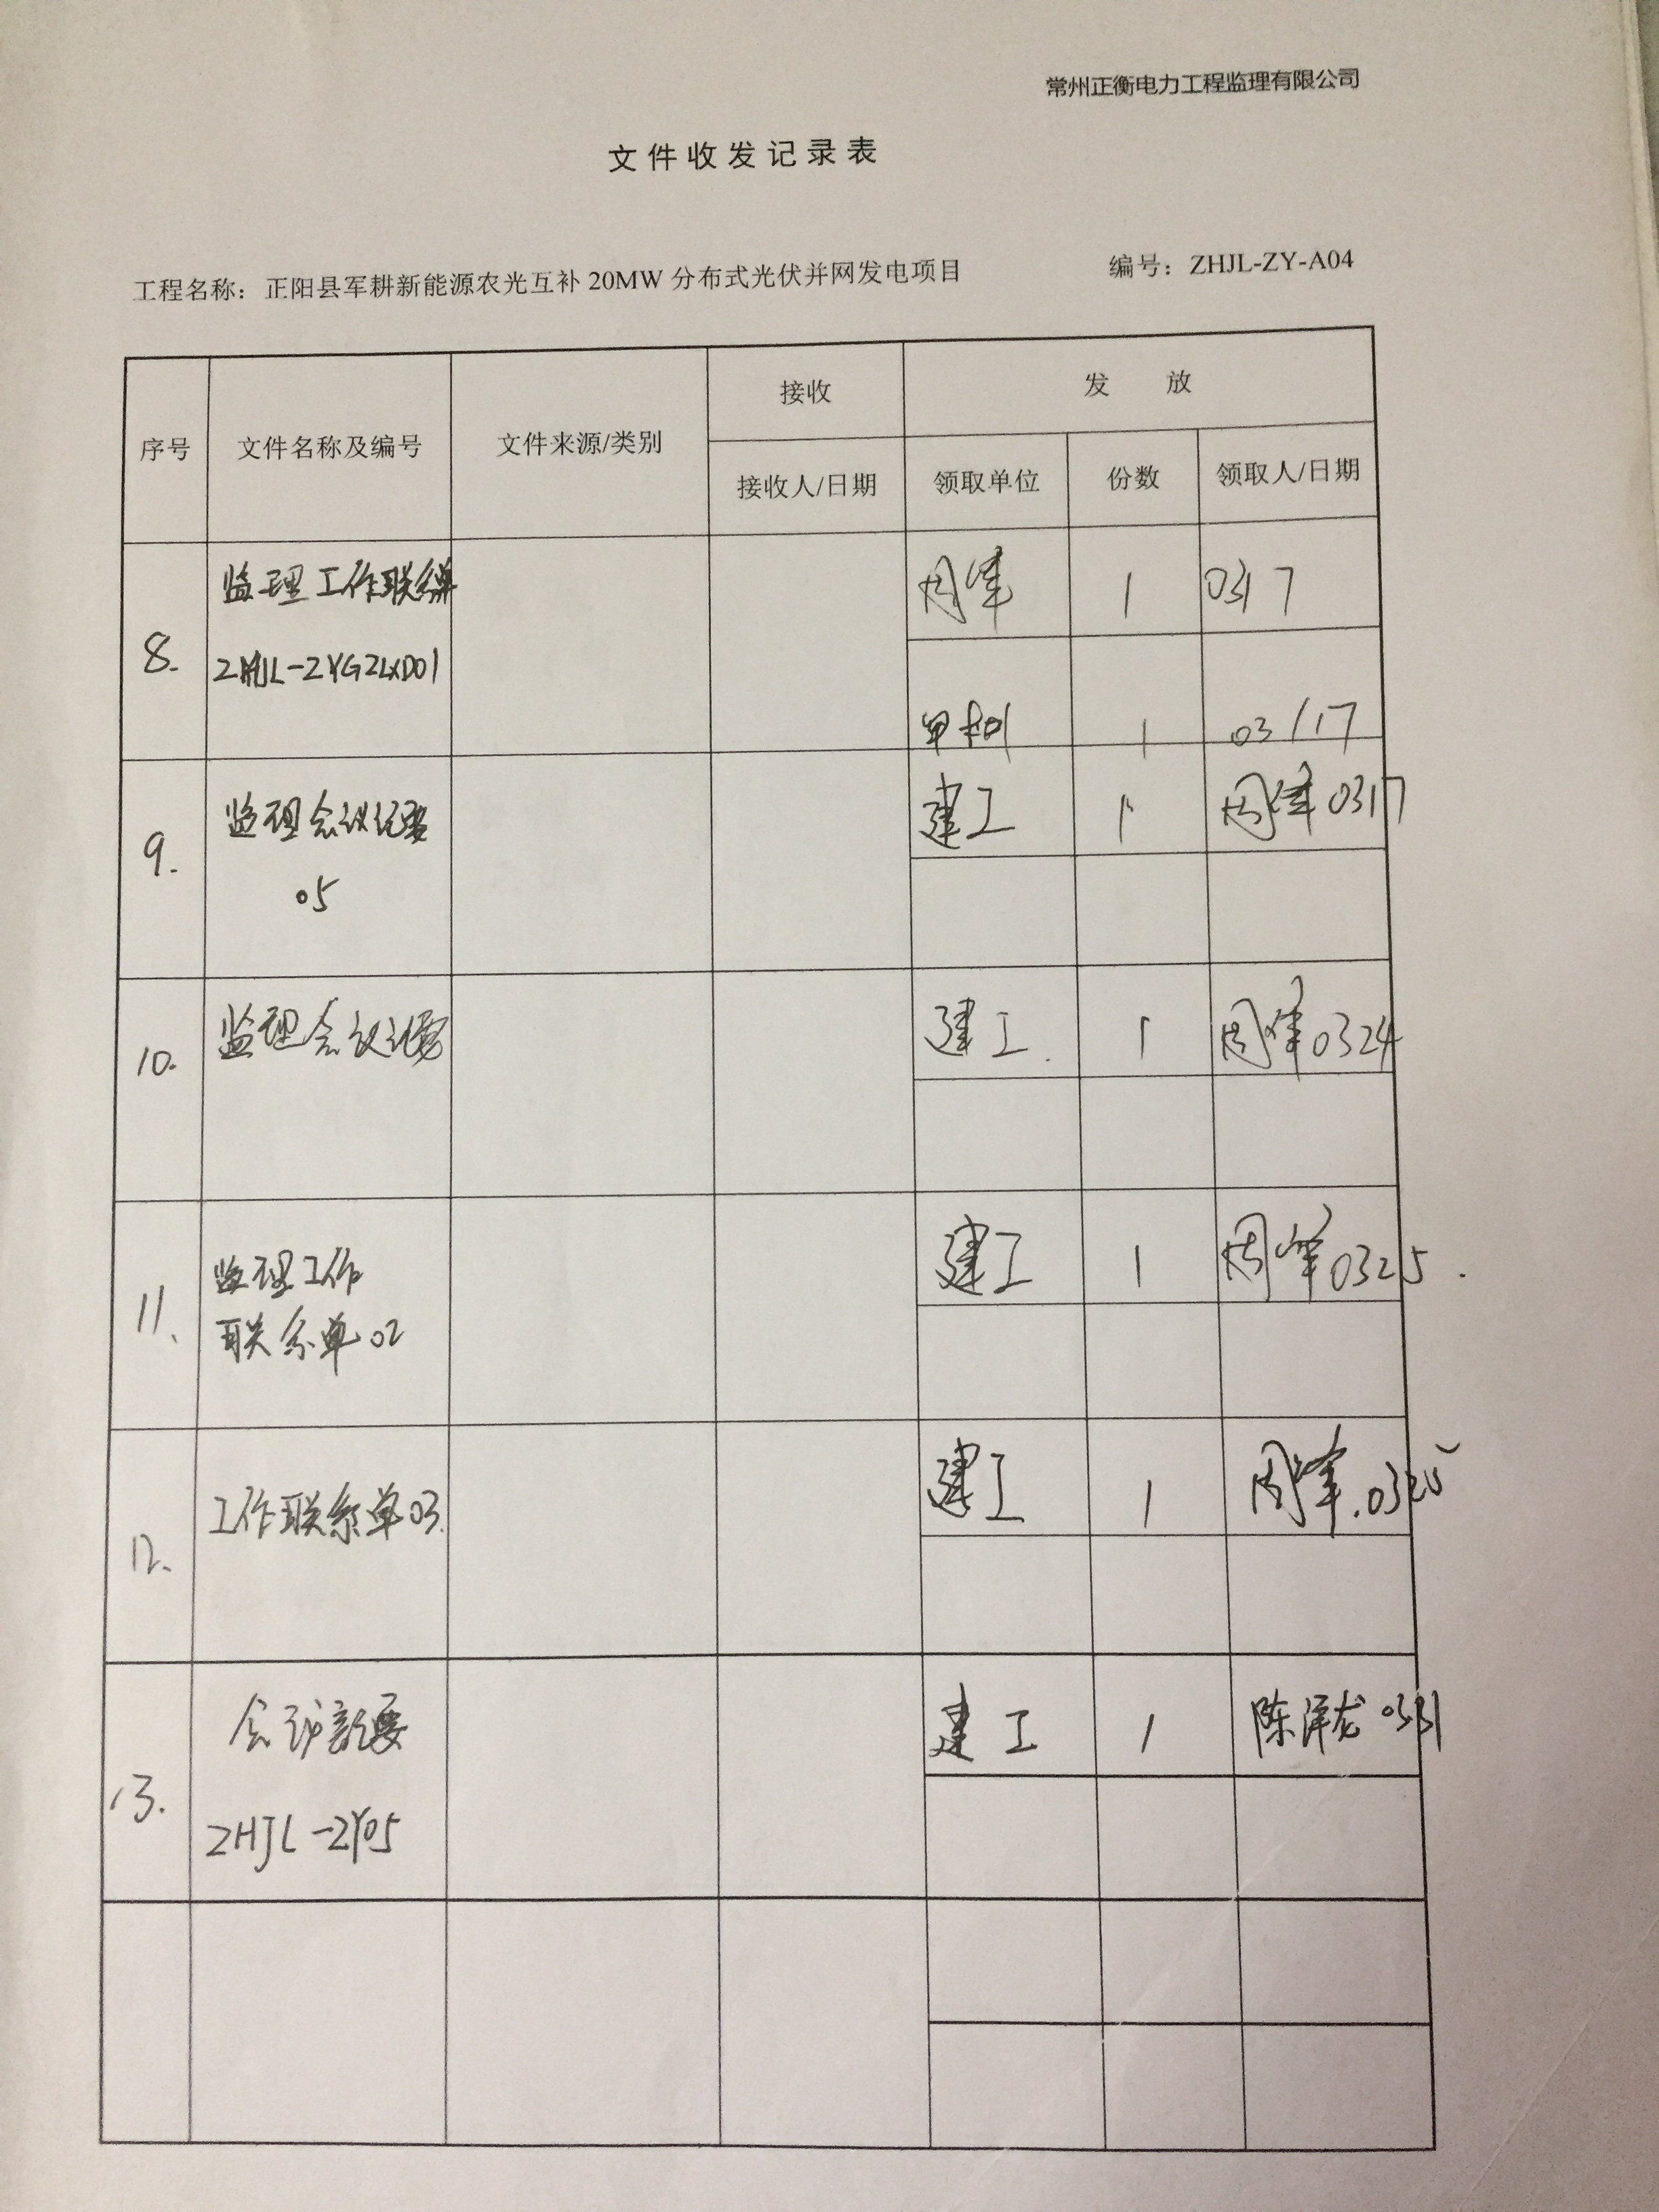 常州正衡电力工程监理有限公司
文件收发记录表
工程名称：正阳县军耕新能源农光互补 20MW 分布式光伏并网发电项目 编号：ZHJL-ZY-A04
序号 文件名称及编号 文件来源/类别 接收 发 放
接收人/日期 领取单位 份数 领取人/日期
监理工作联系单 1 0317
8. ZHJL-ZYGZLXD01
1 03/17
9. 监理会议纪要 建工 1 0317
05
10. 监理会议纪要 建工. 1 0324
11. 监理工作 建工 1 0325.
联系单02
12. 工作联系单03. 建工 1
13. 会议纪要 建工 1 陈泽龙 0331
ZHJL-ZY05